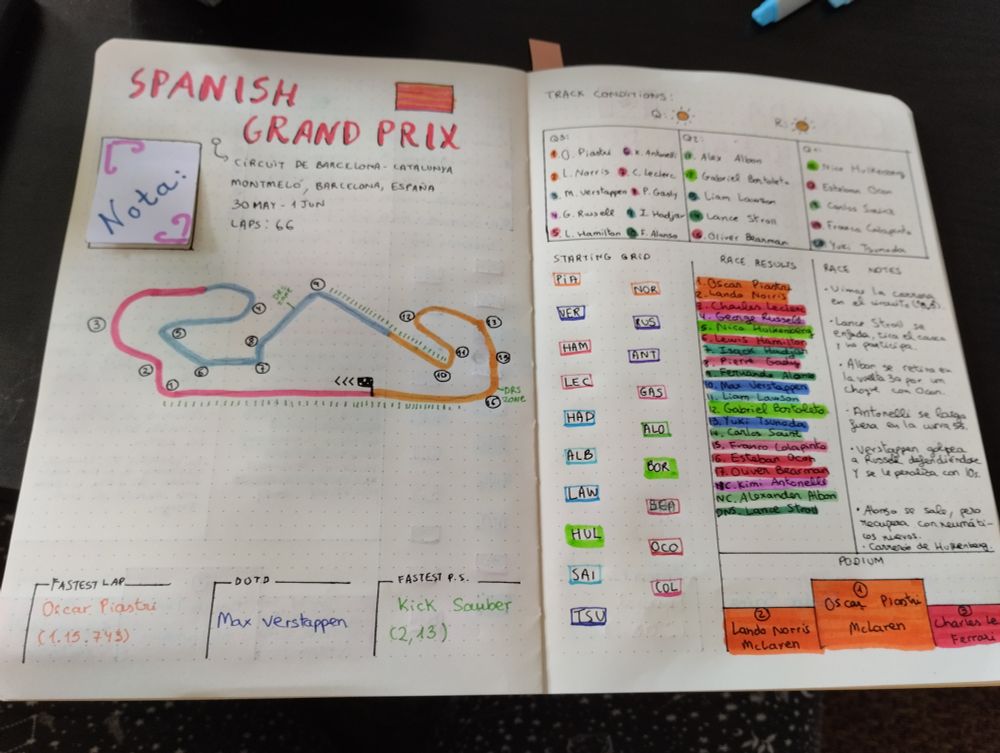 SPANISH
GRAND PRIX
Nota:
CIRCUIT DE BARCELONA-CATALUNYA
MONTMELÓ, BARCELONA, ESPAÑA
30 MAY - 1 JUN
LAPS: 66
3
2
1
4
5
6
7
8
9
DRS ZONE
10
11
12
13
15
DRS ZONE
<<<
FASTEST LAP
Oscar Piastri
(1.15.743)
DOTD
Max Verstappen
FASTEST P.S.
Kick Sauber
(2,13)
TRACK CONDITIONS:
Q:
R:
Q3:
1. O. Piastri
2. L. Norris
3. M. Verstappen
4. G. Russell
5. L. Hamilton
K. Antonelli
C. Leclerc
P. Gasly
I. Hadjar
F. Alonso
Q2:
Alex Albon
Gabriel Bortoleto
Liam Lawson
Lance Stroll
Oliver Bearman
Q1:
Nico Hulkenberg
Esteban Ocon
Carlos Sainz
Franco Colapinto
Yuki Tsunoda
STARTING GRID
PIA
NOR
VER
RUS
HAM
ANT
LEC
GAS
HAD
ALO
ALB
BOR
LAW
BEA
HUL
OCO
SAI
COL
TSU
RACE RESULTS
1. Oscar Piastri
2. Lando Norris
3. Charles Leclerc
4. George Russell
5. Nico Hulkenberg
6. Lewis Hamilton
7. Isack Hadjar
8. Pierre Gasly
9. Fernando Alonso
10. Max Verstappen
11. Liam Lawson
12. Gabriel Bortoleto
13. Yuki Tsunoda
14. Carlos Sainz
15. Franco Colapinto
16. Esteban Ocon
17. Oliver Bearman
NC. Kimi Antonelli
NC. Alexander Albon
DNS. Lance Stroll
RACE NOTES
• Vimos la carrera
en el circuito
• Lance Stroll se
enfada, tira el casco
y no participa.
• Albon se retira en
la vuelta 30 por un
choque con Ocon.
• Antonelli se larga
fuera en la curva 55.
• Verstappen golpea
a Russell defendiéndose
y se le penaliza con 10s.
• Alonso se sale, pero
recupera con neumáti-
cos nuevos.
• Carrerón de Hulkenberg.
PODIUM
1
Oscar Piastri
McLaren
2
Lando Norris
McLaren
3
Charles Le
Ferrari